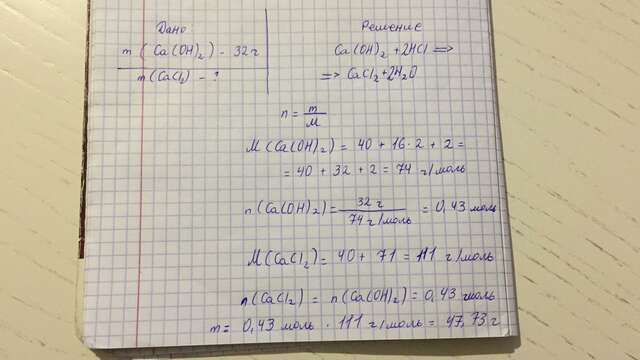 Дано
m (Ca(OH)₂) - 32 г
m(CaCl₂) - ?
Решение
Ca(OH)₂ + 2HCl =>
=> CaCl₂ + 2H₂O
n = m/M
M(Ca(OH)₂) = 40 + 16·2 + 2 =
= 40 + 32 + 2 = 74 г/моль
n(Ca(OH)₂) = 32 г / 74 г/моль = 0,43 моль
M(CaCl₂) = 40 + 71 = 111 г/моль
n(CaCl₂) = n(Ca(OH)₂) = 0,43 моль
m = 0,43 моль · 111 г/моль = 47,73 г